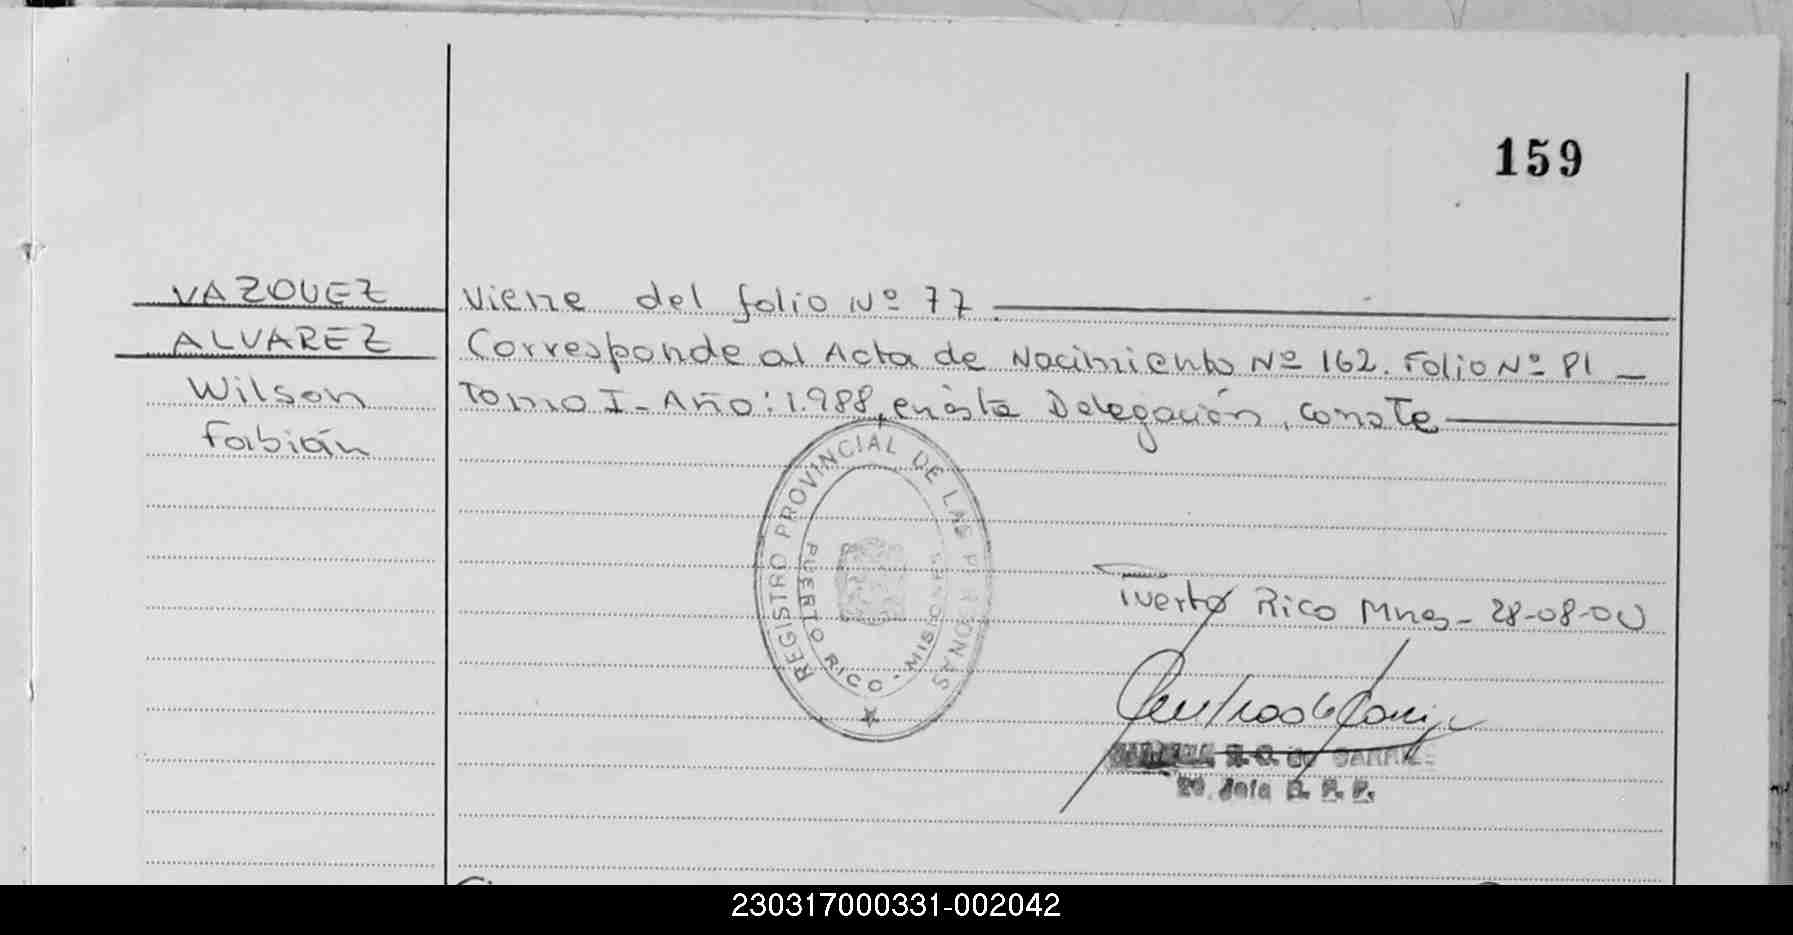 159
VAZQUEZ
ALVAREZ
Wilson
Fabián
Viene del folio Nº 77
Corresponde al Acta de Nacimiento Nº 162. Folio Nº 81 -
Tomo I - Año: 1.988, en ésta Delegación, conste
REGISTRO PROVINCIAL DE LAS PERSONAS
PUERTO RICO - MISIONES
Puerto Rico Mnes - 28-08-00
R. O. de
20. Jefa R. P. P.
230317000331-002042